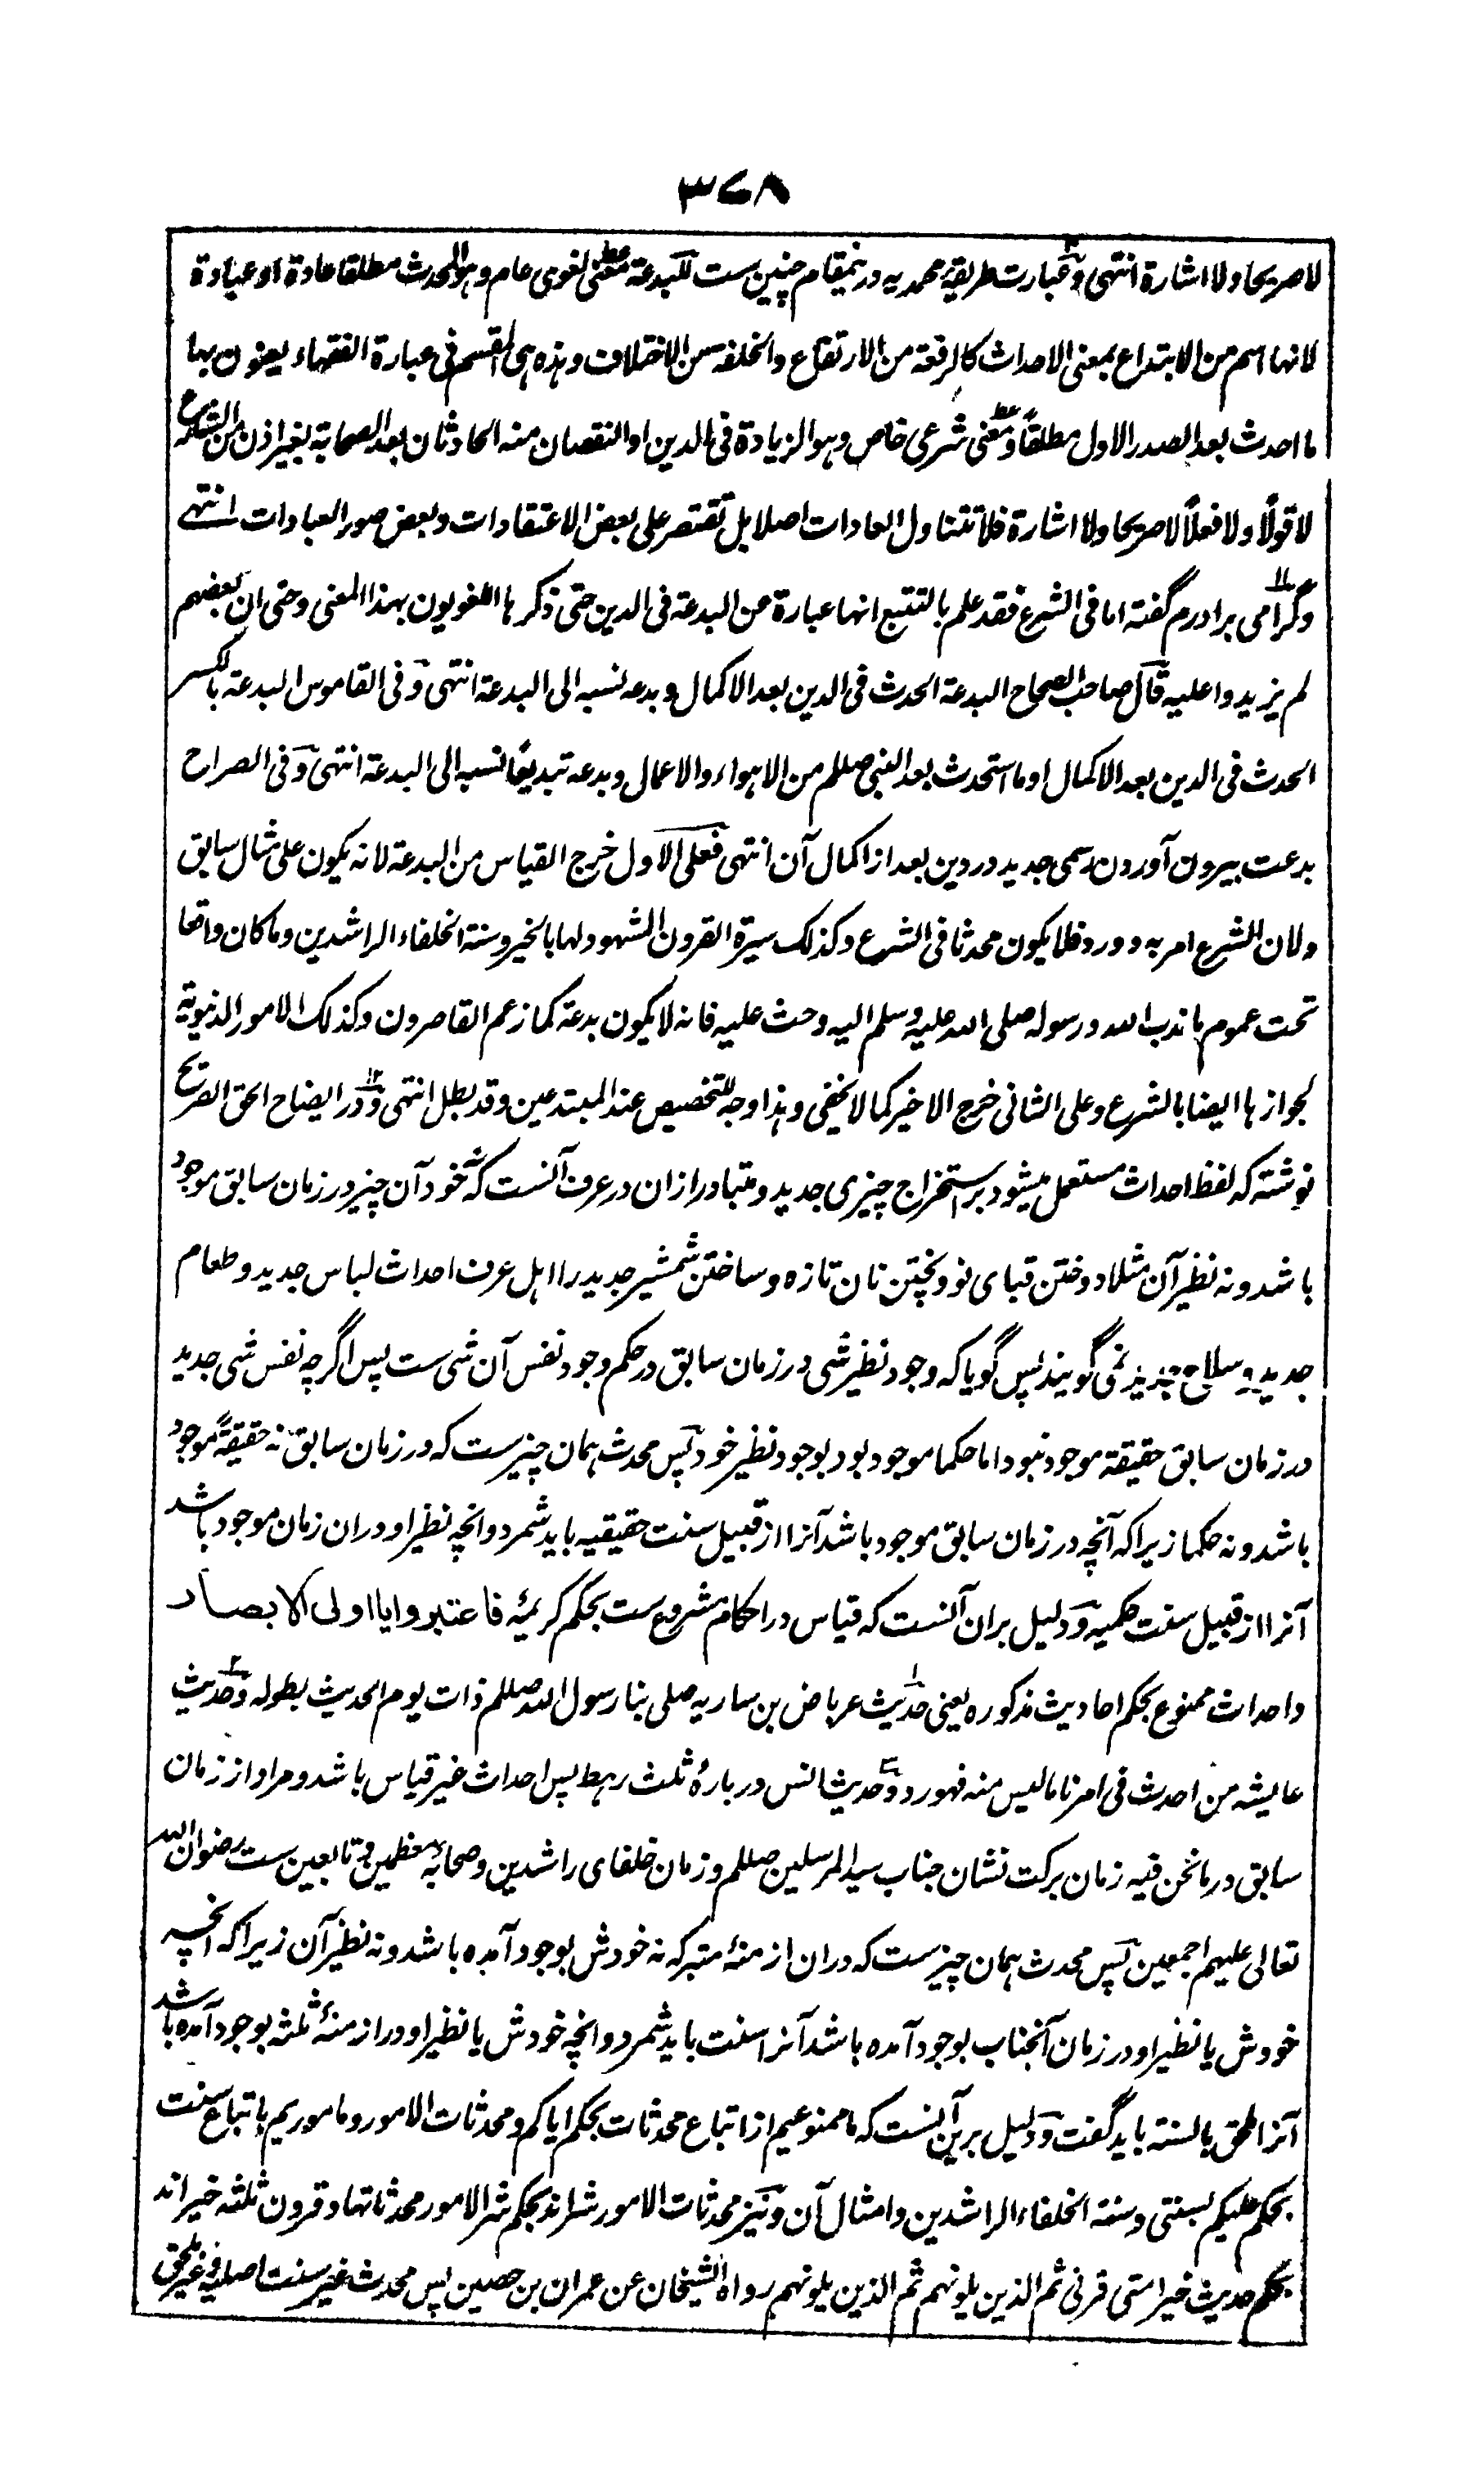 ۳۶۸
لا صریحا ولا اشارة انتهی و عبارت طریقۂ محمدیه درینمقام چنین ست للبدعة معنی لغوی عام وهو المحدث مطلقا عادة او عبادة
لانها اسم من الابتداع بمعنی الاحداث کالرفعة من الارتفاع والخلفة من الاختلاف وهذه هی المقسم فی عبارة الفقهاء یعنون بها
ما احدث بعد الصدر الاول مطلقاً و معنی شرعی خاص وهو الزیادة فی الدین او النقصان منه الحادثان بعد الصحابة بغیر اذن من الشارع
لا قولاً ولا فعلاً لا صریحا ولا اشارة فلا تتناول العادات اصلا بل تقتصر علی بعض الاعتقادات وبعض صور العبادات انتهے
و گرامی برادرم گفته اما فی الشرع فقد علم بالتتبع انها عبارة من البدعة فی الدین حتی ذکرها اللغویون بهذا المعنی وحتی ان بعضهم
لم یزیدوا علیه قال صاحب الصحاح البدعة الحدث فی الدین بعد الاکمال و بدعه نسبه الی البدعة انتهی و فی القاموس البدعة بالکسر
الحدث فی الدین بعد الاکمال او ما استحدث بعد النبی صللم من الاهواء والاعمال و بدعه تبدیعاً نسبه الی البدعة انتهی و فی الصراح
بدعت بیرون آوردن رسمی جدید در دین بعد از اکمال آن انتهی فعلی الاول خرج القیاس من البدعة لانه یکون علی مثال سابق
ولان الشرع امر به و ورد فلا یکون محدثا فی الشرع وکذلک سیرة القرون المشهود لها بالخیر وسنة الخلفاء الراشدین وما کان واقعا
تحت عموم ما ندب الله ورسوله صلی الله علیه وسلم الیه وحث علیه فانه لا یکون بدعة کما زعم القاصرون وکذلک الامور الدنیویة
لجوازها ایضا بالشرع وعلی الثانی خرج الاخیر کما لا یخفی وهذا وجه للتخصیص عند المبتدعین وقد بطل انتهی و در ایضاح الحق الصریح
نوشته که لفظ احداث مستعمل میشود بر استخراج چیزی جدید و متبادر ازان در عرف آنست که نه خود آن چیز در زمان سابق موجود
باشد و نه نظیر آن مثلا دوختن قبای نو و پختن نان تازه و ساختن شمشیر جدید را اهل عرف احداث لباس جدید و طعام
جدید و سلاح جدید نمی گویند پس گویا که وجود نظیر شی در زمان سابق در حکم وجود نفس آن شی ست پس اگرچه نفس شی جدید
در زمان سابق حقیقة موجود نبود اما حکما موجود بود بوجود نظیر خود پس محدث همان چیز ست که در زمان سابق نه حقیقةً موجود
باشد و نه حکما زیرا که آنچه در زمان سابق موجود باشد آنرا از قبیل سنت حقیقیه باید شمرد و انچه نظیر او دران زمان موجود باشد
آنرا از قبیل سنت حکمیه و دلیل بران آنست که قیاس در احکام مشروع ست بحکم کریمۂ فاعتبروا یا اولی الابصار
و احداث ممنوع بحکم احادیث مذکوره یعنی حدیث عرباض بن ساریه صلی بنا رسول الله صللم ذات یوم الحدیث بطوله و حدیث
عایشه من احدث فی امرنا ما لیس منه فهو رد و حدیث انس دربارۂ ثلث رهط پس احداث غیر قیاس باشد و مراد از زمان
سابق در ما نحن فیه زمان برکت نشان جناب سید المرسلین صللم و زمان خلفای راشدین و صحابۂ معظمین و تابعین ست رضوان الله
تعالی علیهم اجمعین پس محدث همان چیز ست که دران ازمنۂ متبرکه نه خودش بوجود آمده باشد و نه نظیر آن زیرا که انچه
خودش یا نظیر او در زمان آنجناب بوجود آمده باشد آنرا سنت باید شمرد و انچه خودش یا نظیر او در ازمنۂ ثلثه بوجود آمده باشد
آنرا ملحق بالسنة باید گفت و دلیل برین آنست که ما ممنوعیم از اتباع محدثات بحکم ایاکم ومحدثات الامور و ماموریم باتباع سنت
بحکم علیکم بسنتی وسنة الخلفاء الراشدین و امثال آن و نیز محدثات الامور شر اند بحکم شر الامور محدثاتها و قرون ثلثه خیر اند
بحکم حدیث خیر امتی قرنی ثم الذین یلونهم ثم الذین یلونهم رواه الشیخان عن عمران بن حصین پس محدث غیر سنت اصلیه و غیر ملحق